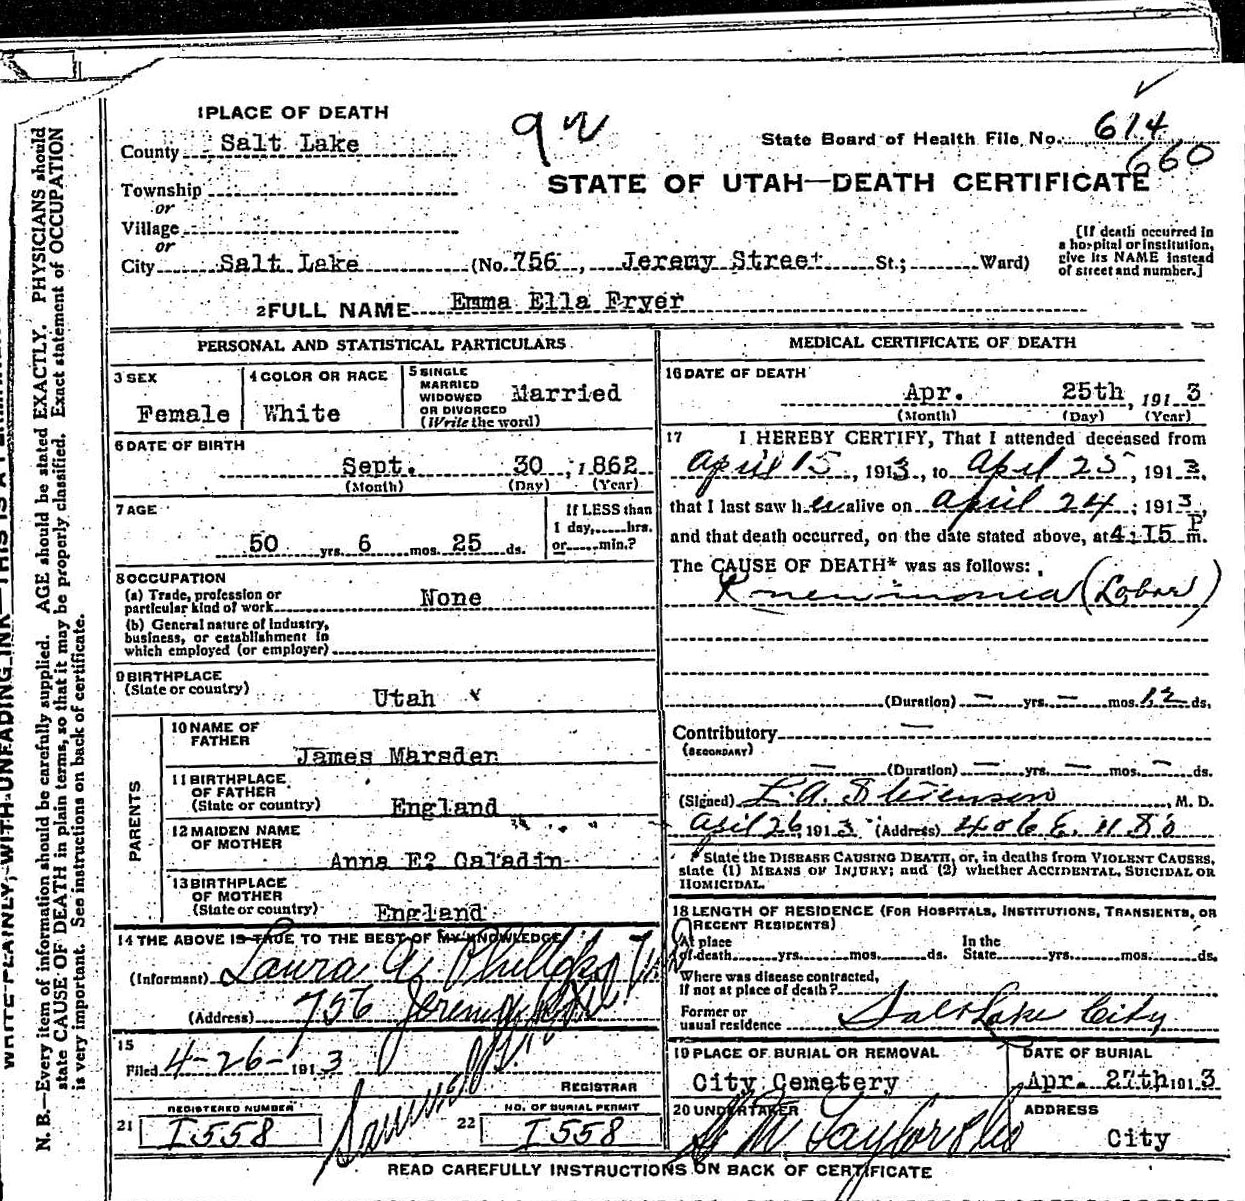 1 PLACE OF DEATH
County Salt Lake
Township
or
Village
or
City Salt Lake (No. 756, Jeremy Street St.; Ward)
State Board of Health File No. 614
660
STATE OF UTAH—DEATH CERTIFICATE
[If death occurred in
a hospital or institution,
give its NAME instead
of street and number.]
2 FULL NAME Emma Ella Fryer
PERSONAL AND STATISTICAL PARTICULARS
3 SEX
Female
4 COLOR OR RACE
White
5 SINGLE
MARRIED
WIDOWED
OR DIVORCED
(Write the word)
Married
6 DATE OF BIRTH
Sept. 30, 1862
(Month) (Day) (Year)
7 AGE
50 yrs. 6 mos. 25 ds.
If LESS than
1 day,.....hrs.
or.....min.?
8 OCCUPATION
(a) Trade, profession or
particular kind of work None
(b) General nature of industry,
business, or establishment in
which employed (or employer)
9 BIRTHPLACE
(State or country)
Utah
PARENTS
10 NAME OF
FATHER
James Marsden
11 BIRTHPLACE
OF FATHER
(State or country)
England
12 MAIDEN NAME
OF MOTHER
Anna E? Galadin
13 BIRTHPLACE
OF MOTHER
(State or country)
England
14 THE ABOVE IS TRUE TO THE BEST OF MY KNOWLEDGE
(Informant) Laura A. Phillips
(Address) 756 Jeremy
15
Filed 4-26-1913
REGISTRAR
21 REGISTERED NUMBER
1558
22 NO. OF BURIAL PERMIT
1558
MEDICAL CERTIFICATE OF DEATH
16 DATE OF DEATH
Apr. 25th, 1913
(Month) (Day) (Year)
17 I HEREBY CERTIFY, That I attended deceased from
April 15, 1913, to April 25, 1913,
that I last saw her alive on April 24, 1913,
and that death occurred, on the date stated above, at 4:15 P m.
The CAUSE OF DEATH* was as follows:
Pneumonia (Lobar)
(Duration) — yrs. — mos. 12 ds.
Contributory —
(SECONDARY)
— (Duration) — yrs. — mos. — ds.
(Signed) L. A. Stevenson, M. D.
April 26 1913 (Address) 406 E. 11 So
* State the DISEASE CAUSING DEATH, or, in deaths from VIOLENT CAUSES,
state (1) MEANS OF INJURY; and (2) whether ACCIDENTAL, SUICIDAL OR
HOMICIDAL.
18 LENGTH OF RESIDENCE (FOR HOSPITALS, INSTITUTIONS, TRANSIENTS, OR
RECENT RESIDENTS)
At place
of death yrs. mos. ds.
In the
State yrs. mos. ds.
Where was disease contracted,
if not at place of death?
Former or
usual residence Salt Lake City
19 PLACE OF BURIAL OR REMOVAL
City Cemetery
DATE OF BURIAL
Apr. 27th 1913
20 UNDERTAKER
S M Taylor & Co
ADDRESS
City
READ CAREFULLY INSTRUCTIONS ON BACK OF CERTIFICATE
N. B.—Every item of information should be carefully supplied. AGE should be stated EXACTLY. PHYSICIANS should
state CAUSE OF DEATH in plain terms, so that it may be properly classified. Exact statement of OCCUPATION
is very important. See instructions on back of certificate.
WRITE PLAINLY, WITH UNFADING INK—THIS IS A